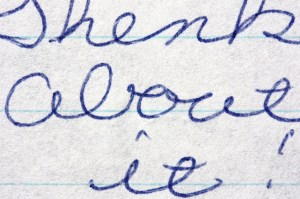 Think
about
it!